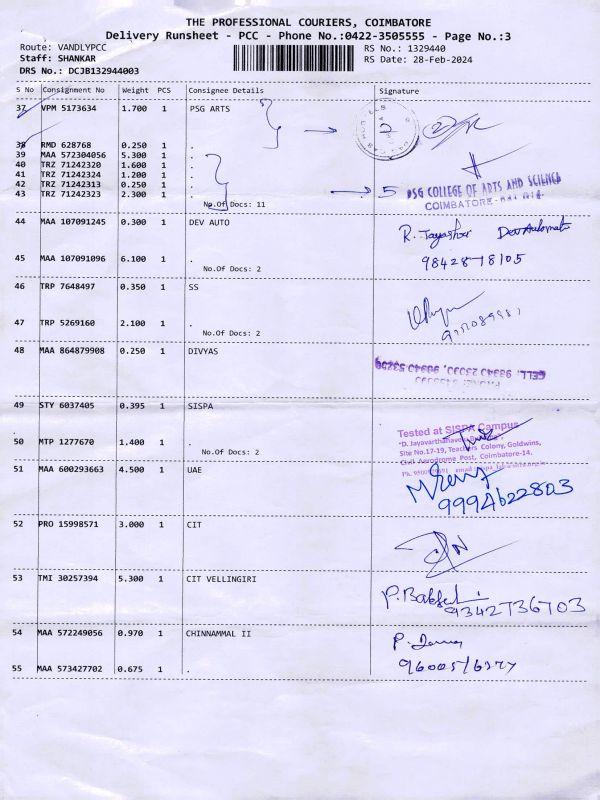 THE PROFESSIONAL COURIERS, COIMBATORE
Delivery Runsheet - PCC - Phone No.:0422-3505555 - Page No.:3
Route: VANDLYPCC RS No.: 1329440
Staff: SHANKAR RS Date: 28-Feb-2024
DRS No.: DCJB132944003
S No Consignment No Weight PCS Consignee Details Signature
37 VPM 5173634 1.700 1 PSG ARTS
2
38 RMD 628768 0.250 1 .
39 MAA 572304056 5.300 1 .
40 TRZ 71242320 1.600 1 .
41 TRZ 71242324 1.200 1 .
42 TRZ 71242313 0.250 1 .
43 TRZ 71242323 2.300 1 .
5 PSG COLLEGE OF ARTS AND SCIENCE
COIMBATORE
No.Of Docs: 11
44 MAA 107091245 0.300 1 DEV AUTO
R. Jayashri Dev Automati
45 MAA 107091096 6.100 1 .
98428 78105
No.Of Docs: 2
46 TRP 7648497 0.350 1 SS
47 TRP 5269160 2.100 1 .
No.Of Docs: 2
48 MAA 864879908 0.250 1 DIVYAS
49 STY 6037405 0.395 1 SISPA
Tested at SISPA Campus
50 MTP 1277670 1.400 1 .
Site No.17-19, Teachers Colony, Goldwins,
Civil Aerodrome Post, Coimbatore-14.
No.Of Docs: 2
51 MAA 600293663 4.500 1 UAE
9994622803
52 PRO 15998571 3.000 1 CIT
53 TMI 30257394 5.300 1 CIT VELLINGIRI
9342736703
54 MAA 572249056 0.970 1 CHINNAMMAL II
55 MAA 573427702 0.675 1 .